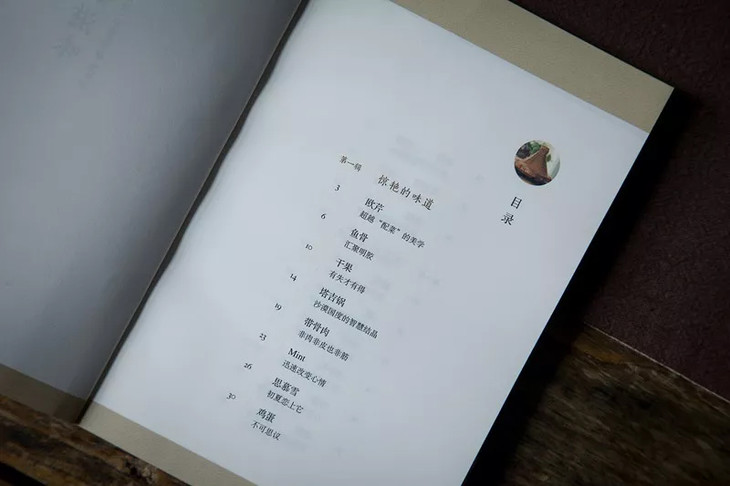 目录
第一辑 惊艳的味道
3 欧芹
超越“配菜”的美学
6 鱼骨
汇聚明胶
10 干果
有失才有得
14 塔吉锅
沙漠国度的智慧结晶
19 带骨肉
非肉非皮也非筋
23 Mint
迅速改变心情
26 思慕雪
初夏恋上它
30 鸡蛋
不可思议